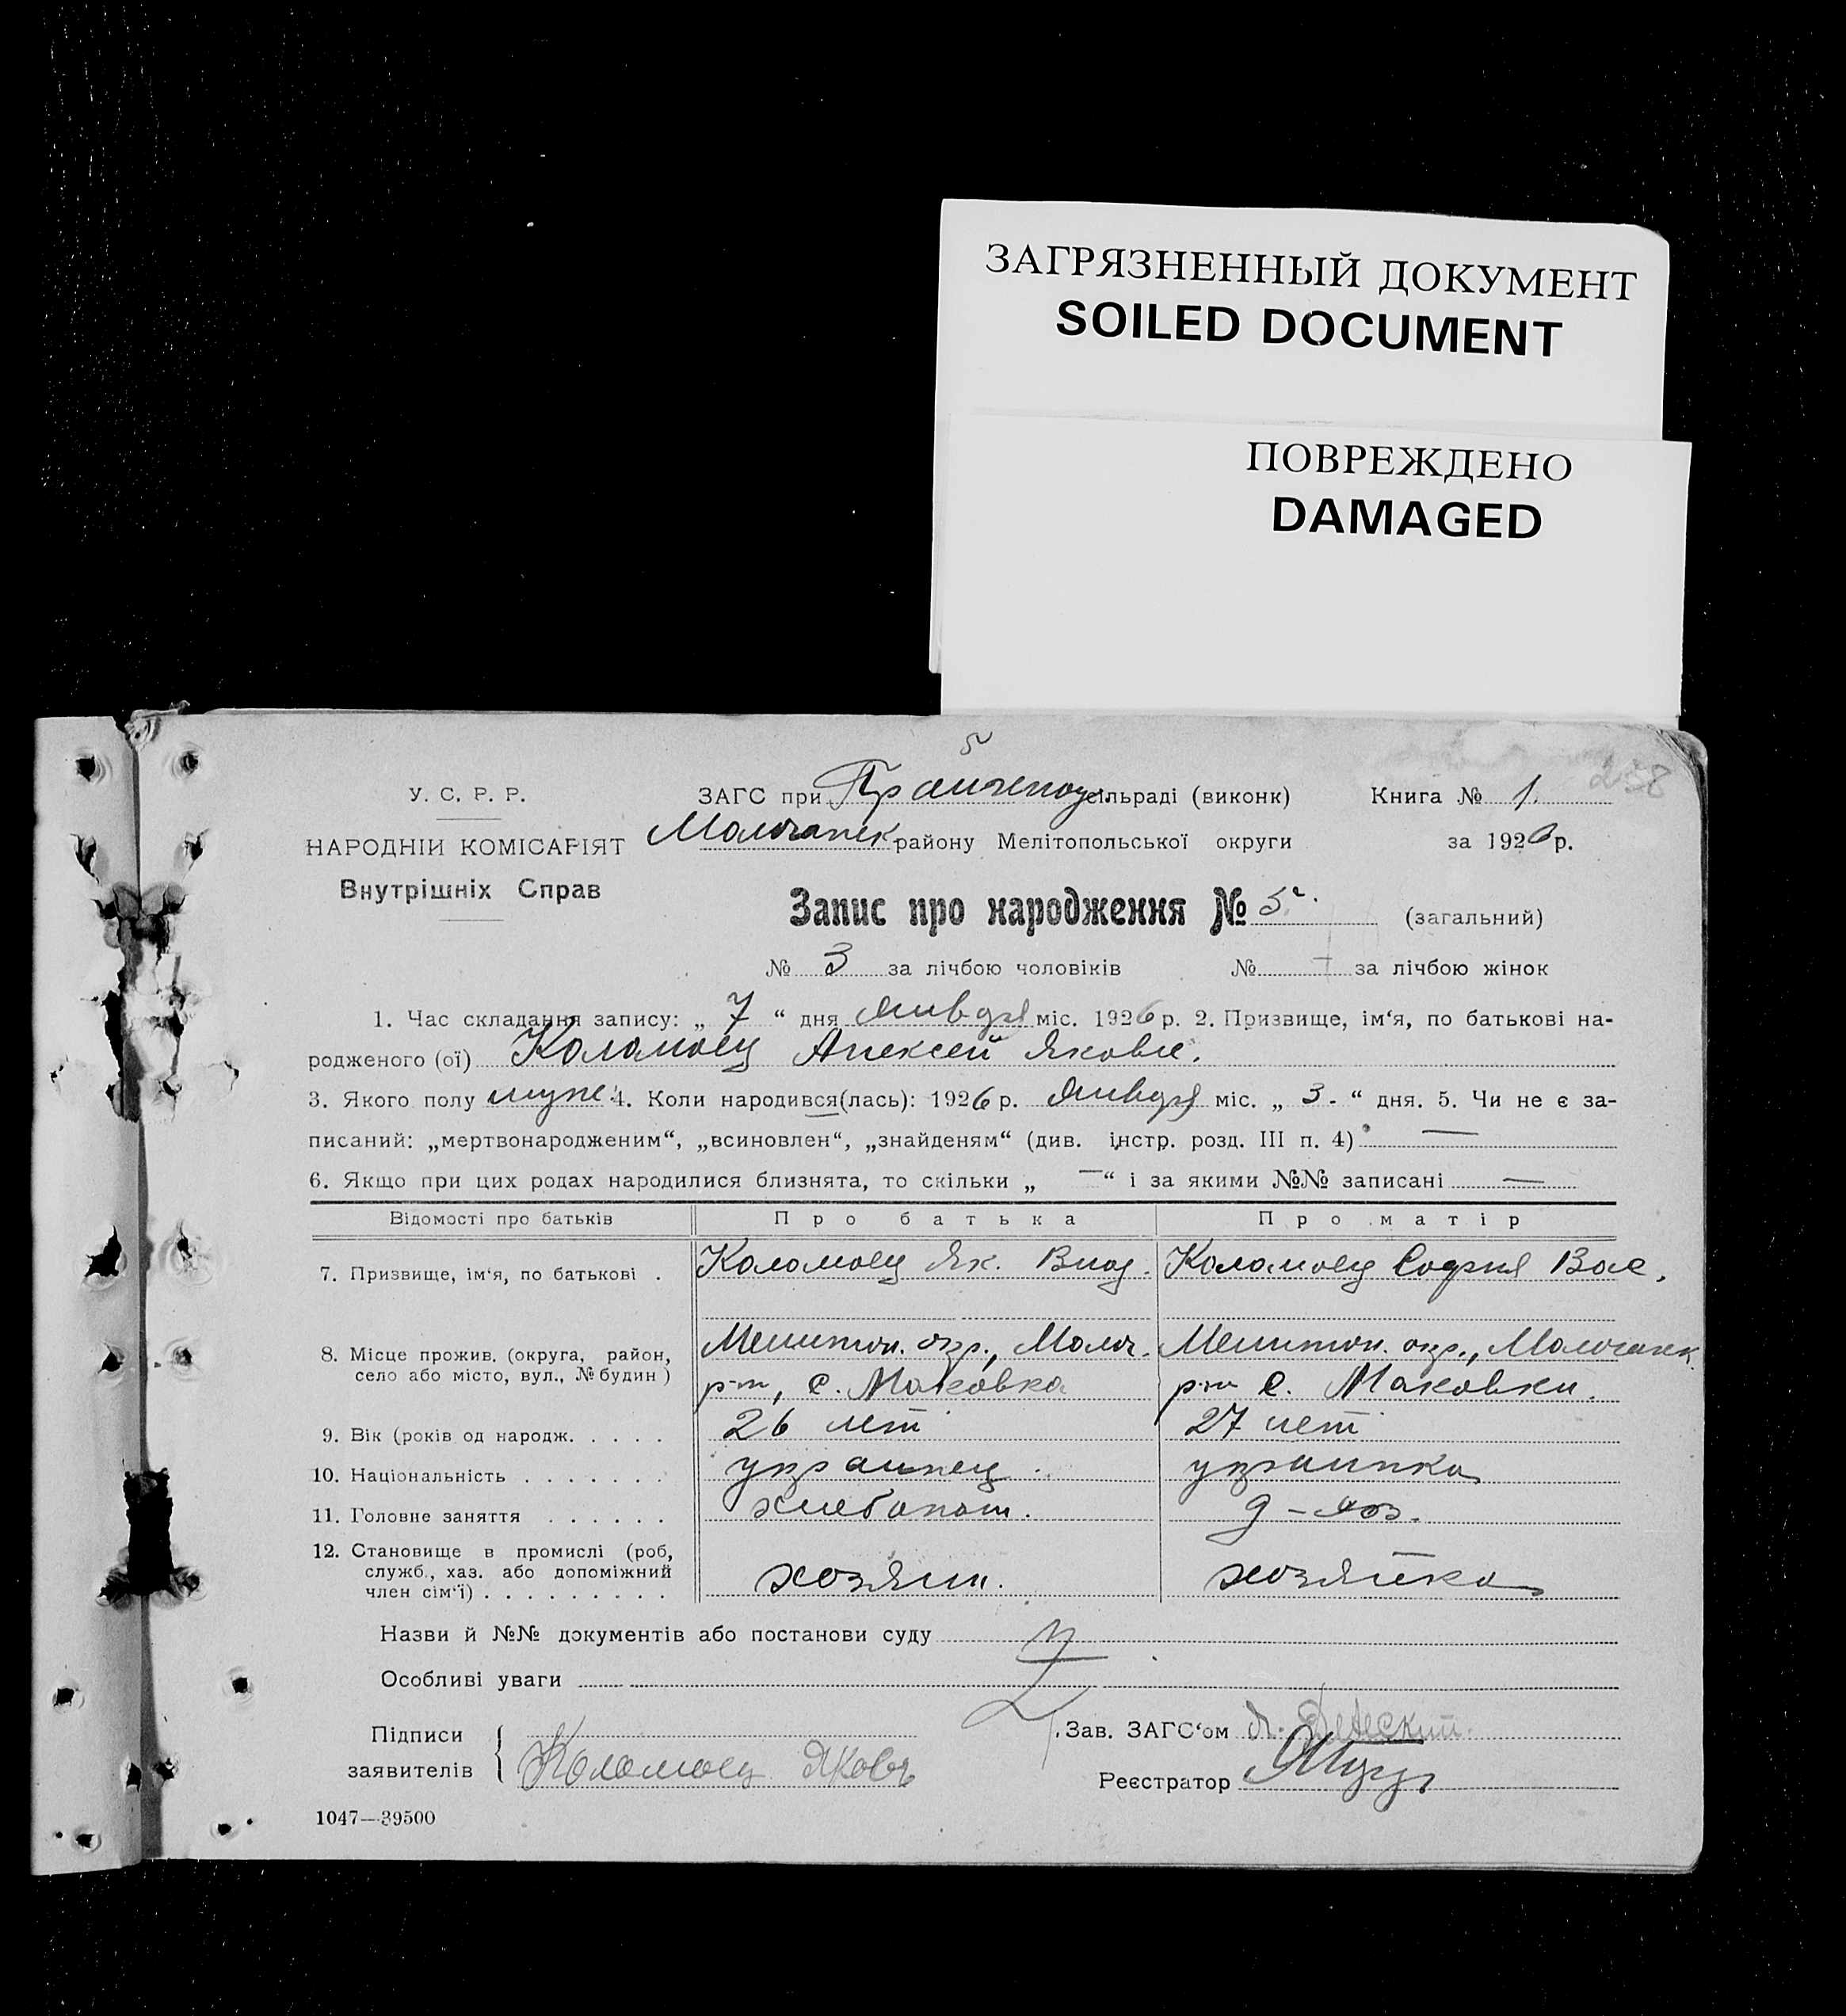 ЗАГРЯЗНЕННЫЙ ДОКУМЕНТ
SOILED DOCUMENT
ПОВРЕЖДЕНО
DAMAGED
5
238
У. С. Р. Р.
НАРОДНІЙ КОМІСАРІЯТ
Внутрішніх Справ
ЗАГС при сільраді (виконк)
Молочанск району Мелітопольської округи
Книга № 1.
за 1926 р.
Запис про народження № 5. (загальний)
№ 3 за лічбою чоловіків № за лічбою жінок
1. Час складання запису: „ 7 “ дня января міс. 1926 р. 2. Призвище, ім‘я, по батькові на-
родженого (ої) Коломоец Алексей Яковл.
3. Якого полу муж. 4. Коли народився(лась): 1926 р. января міс. „ 3. “ дня. 5. Чи не є за-
писаний: „мертвонародженим“, „всиновлен“, „знайденям“ (див. інстр. розд. III п. 4) —
6. Якщо при цих родах народилися близнята, то скільки „ — “ і за якими №№ записані —
Відомості про батьків Про батька Про матір
7. Призвище, ім‘я, по батькові . Коломоец Як. Влад. Коломоец София Вас.
8. Місце прожив. (округа, район, Мелитоп. окр., Молоч. Мелитоп. окр., Молочанск.
село або місто, вул., № будин ) р-н, с. Маковка р-н с. Маковки.
9. Вік (років од народж. . . . . 26 лет 27 лет
10. Національність . . . . . . . украинец. украинка
11. Головне заняття . . . . . . хлебопаш. д-хоз.
12. Становище в промислі (роб,
служб., хаз. або допоміжний
член сім‘ї) . . . . . . . . . хозяин. хозяйка
Назви й №№ документів або постанови суду
Особливі уваги
Підписи
заявителів
Коломоец Яковъ
Зав. ЗАГС‘ом
Реєстратор
1047—39500